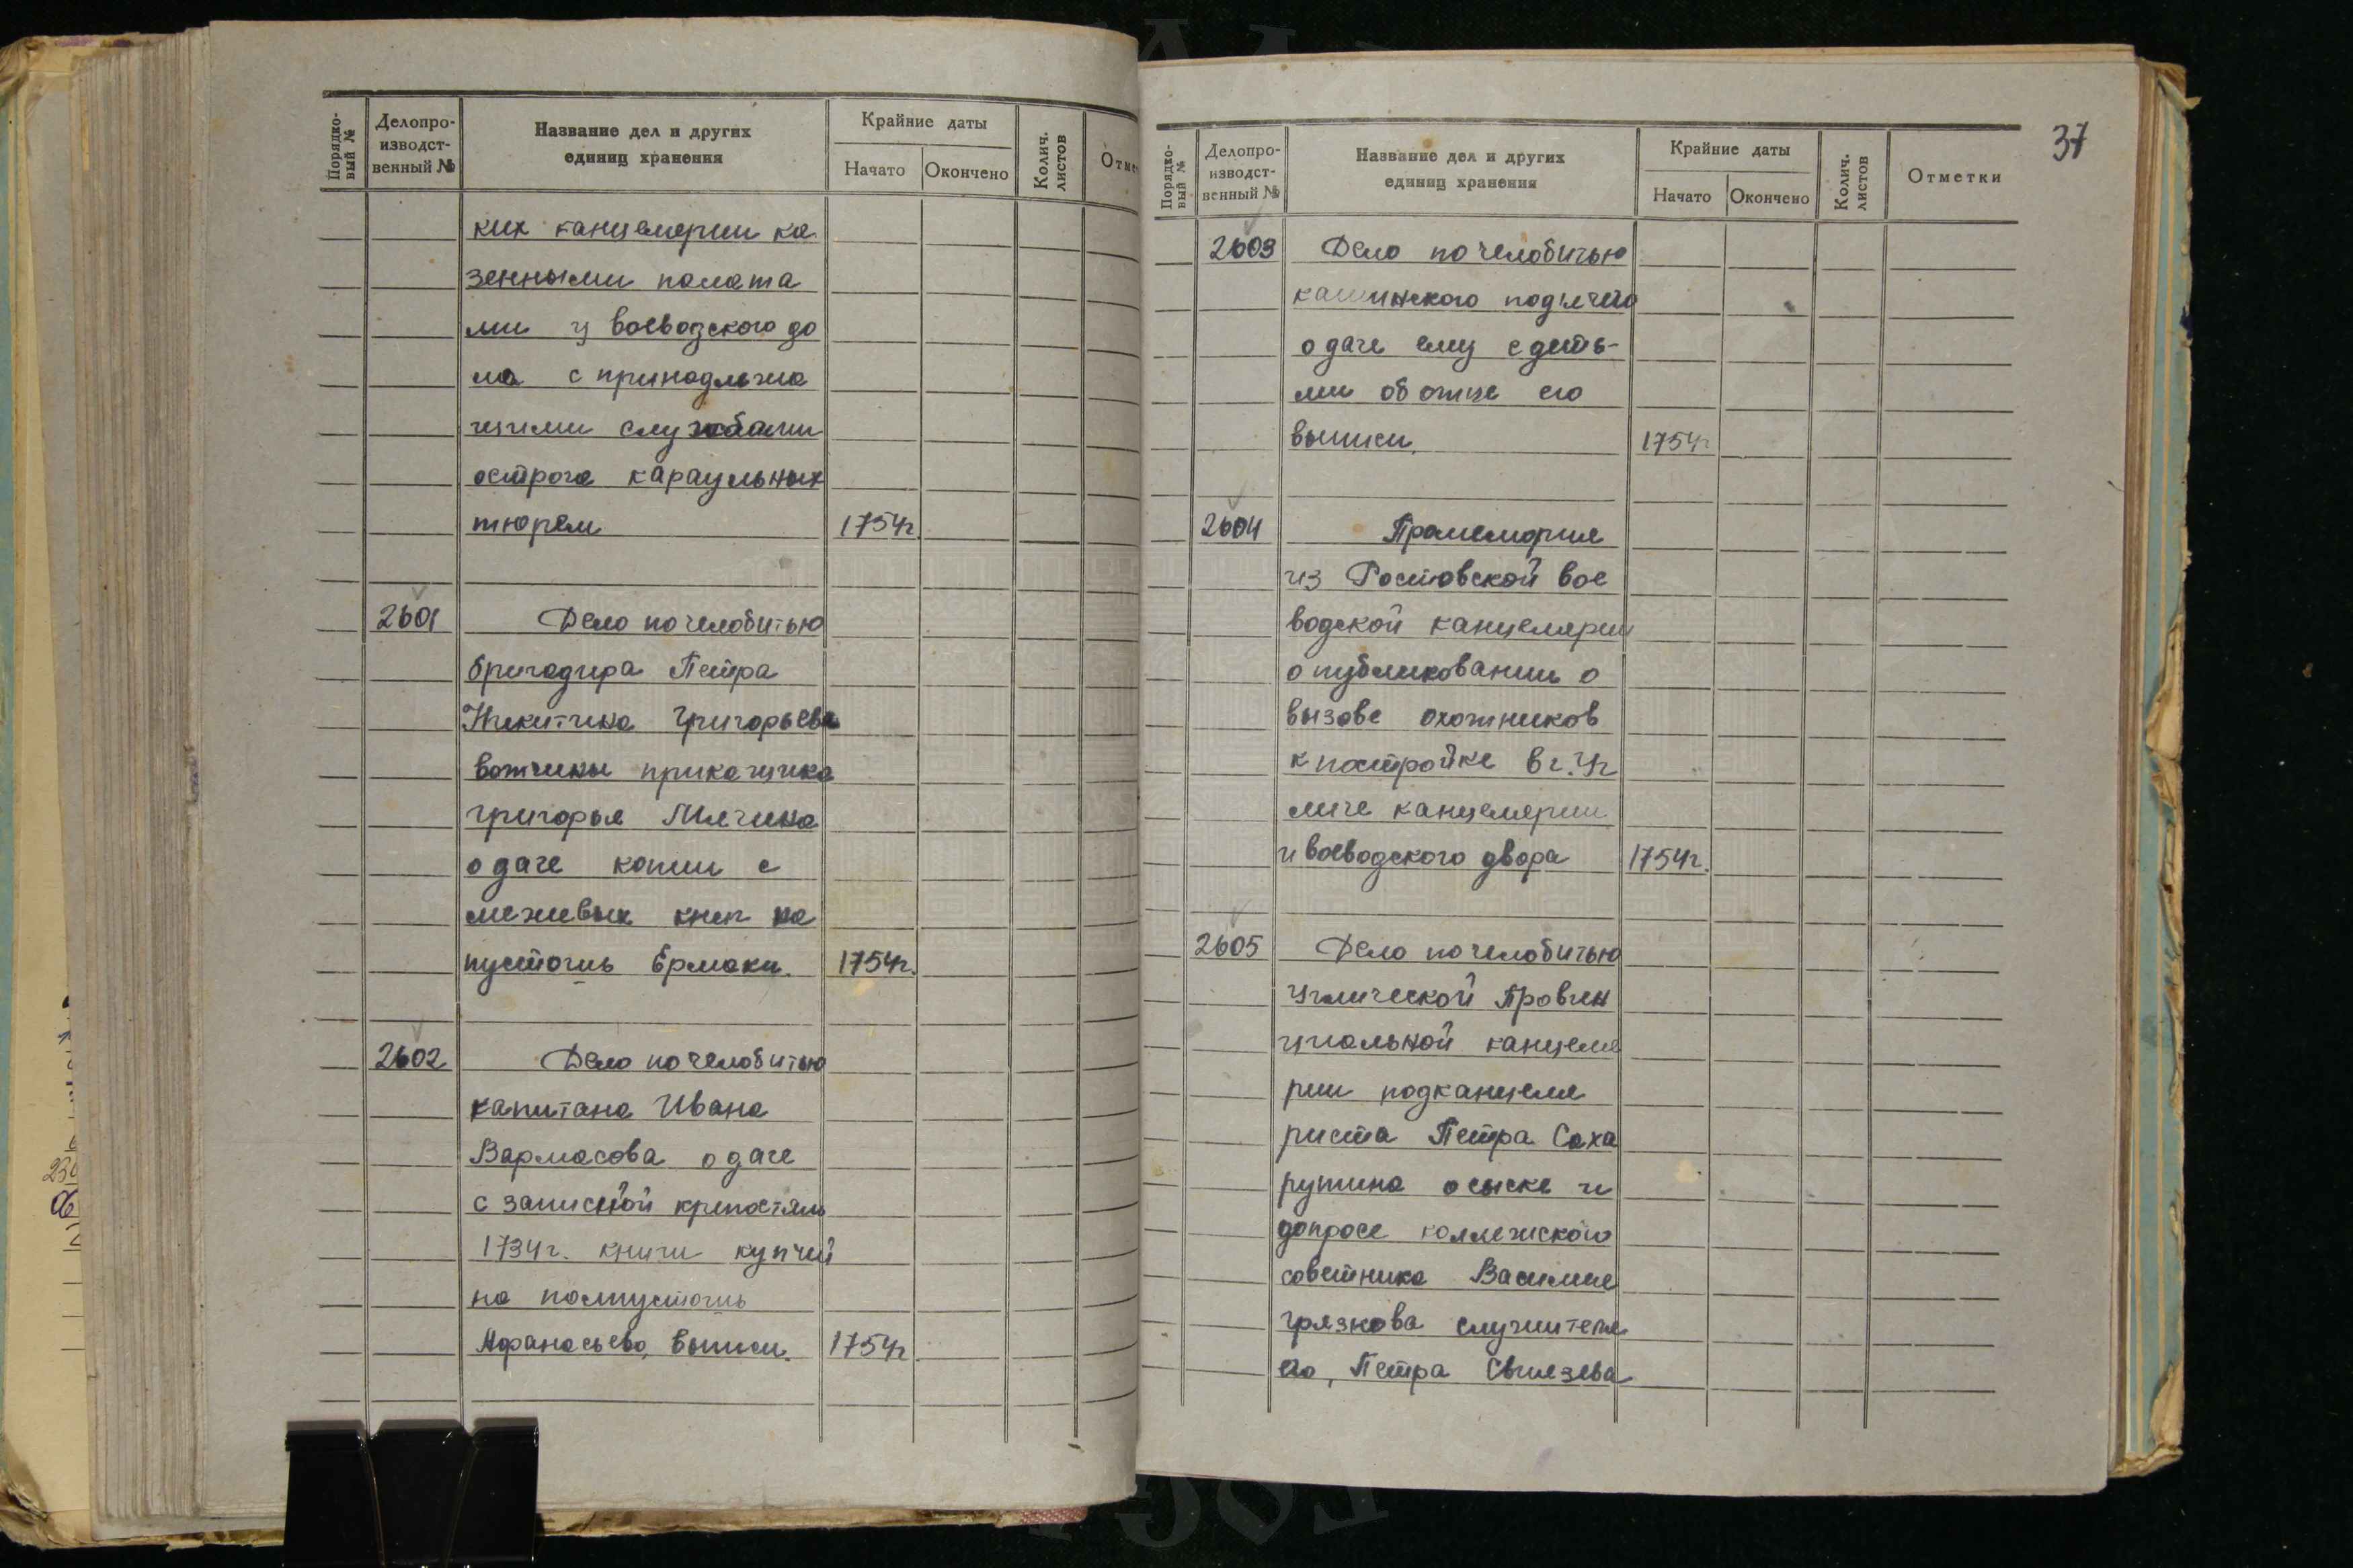 Порядко-
вый №
Делопро-
изводст-
венный №
Название дел и других
единиц хранения
Крайние даты
Начато
Окончено
Колич.
листов
Отме
ких канцелярии ка
зенными палата
ми и воеводского до
ма с принадлежа
щими службами
острога караульных
тюрем 1754г.
2601 Дело по челобитью
бригадира Петра
Никитина Григорьева
вотчины прикащика
Григорья Мячина
о даче копии с
межевых книг на
пустошь Ермаки. 1754г.
2602 Дело по челобитью
капитана Ивана
Вармасова о даче
с записной крепостям
1734г. книги купчей
на полпустошь
Афанасьево, выписи. 1754г
37
Порядко-
вый №
Делопро-
изводст-
венный №
Название дел и других
единиц хранения
Крайние даты
Начато
Окончено
Колич.
листов
Отметки
2603 Дело по челобитью
кашинского подьячего
о даче ему с деть-
ми об отце его
выписи. 1754г
2604 Промемория
из Ростовской вое
водской канцелярии
о публиковании о
вызове охотников
к постройке в г. Уг
личе канцелярии
и воеводского двора 1754г.
2605 Дело по челобитью
Углической Провин
циальной канцеля
рии подканцеля
риста Петра Саха
рутина о сыске и
допросе коллежского
советника Василия
Грязнова служителя
его, Петра